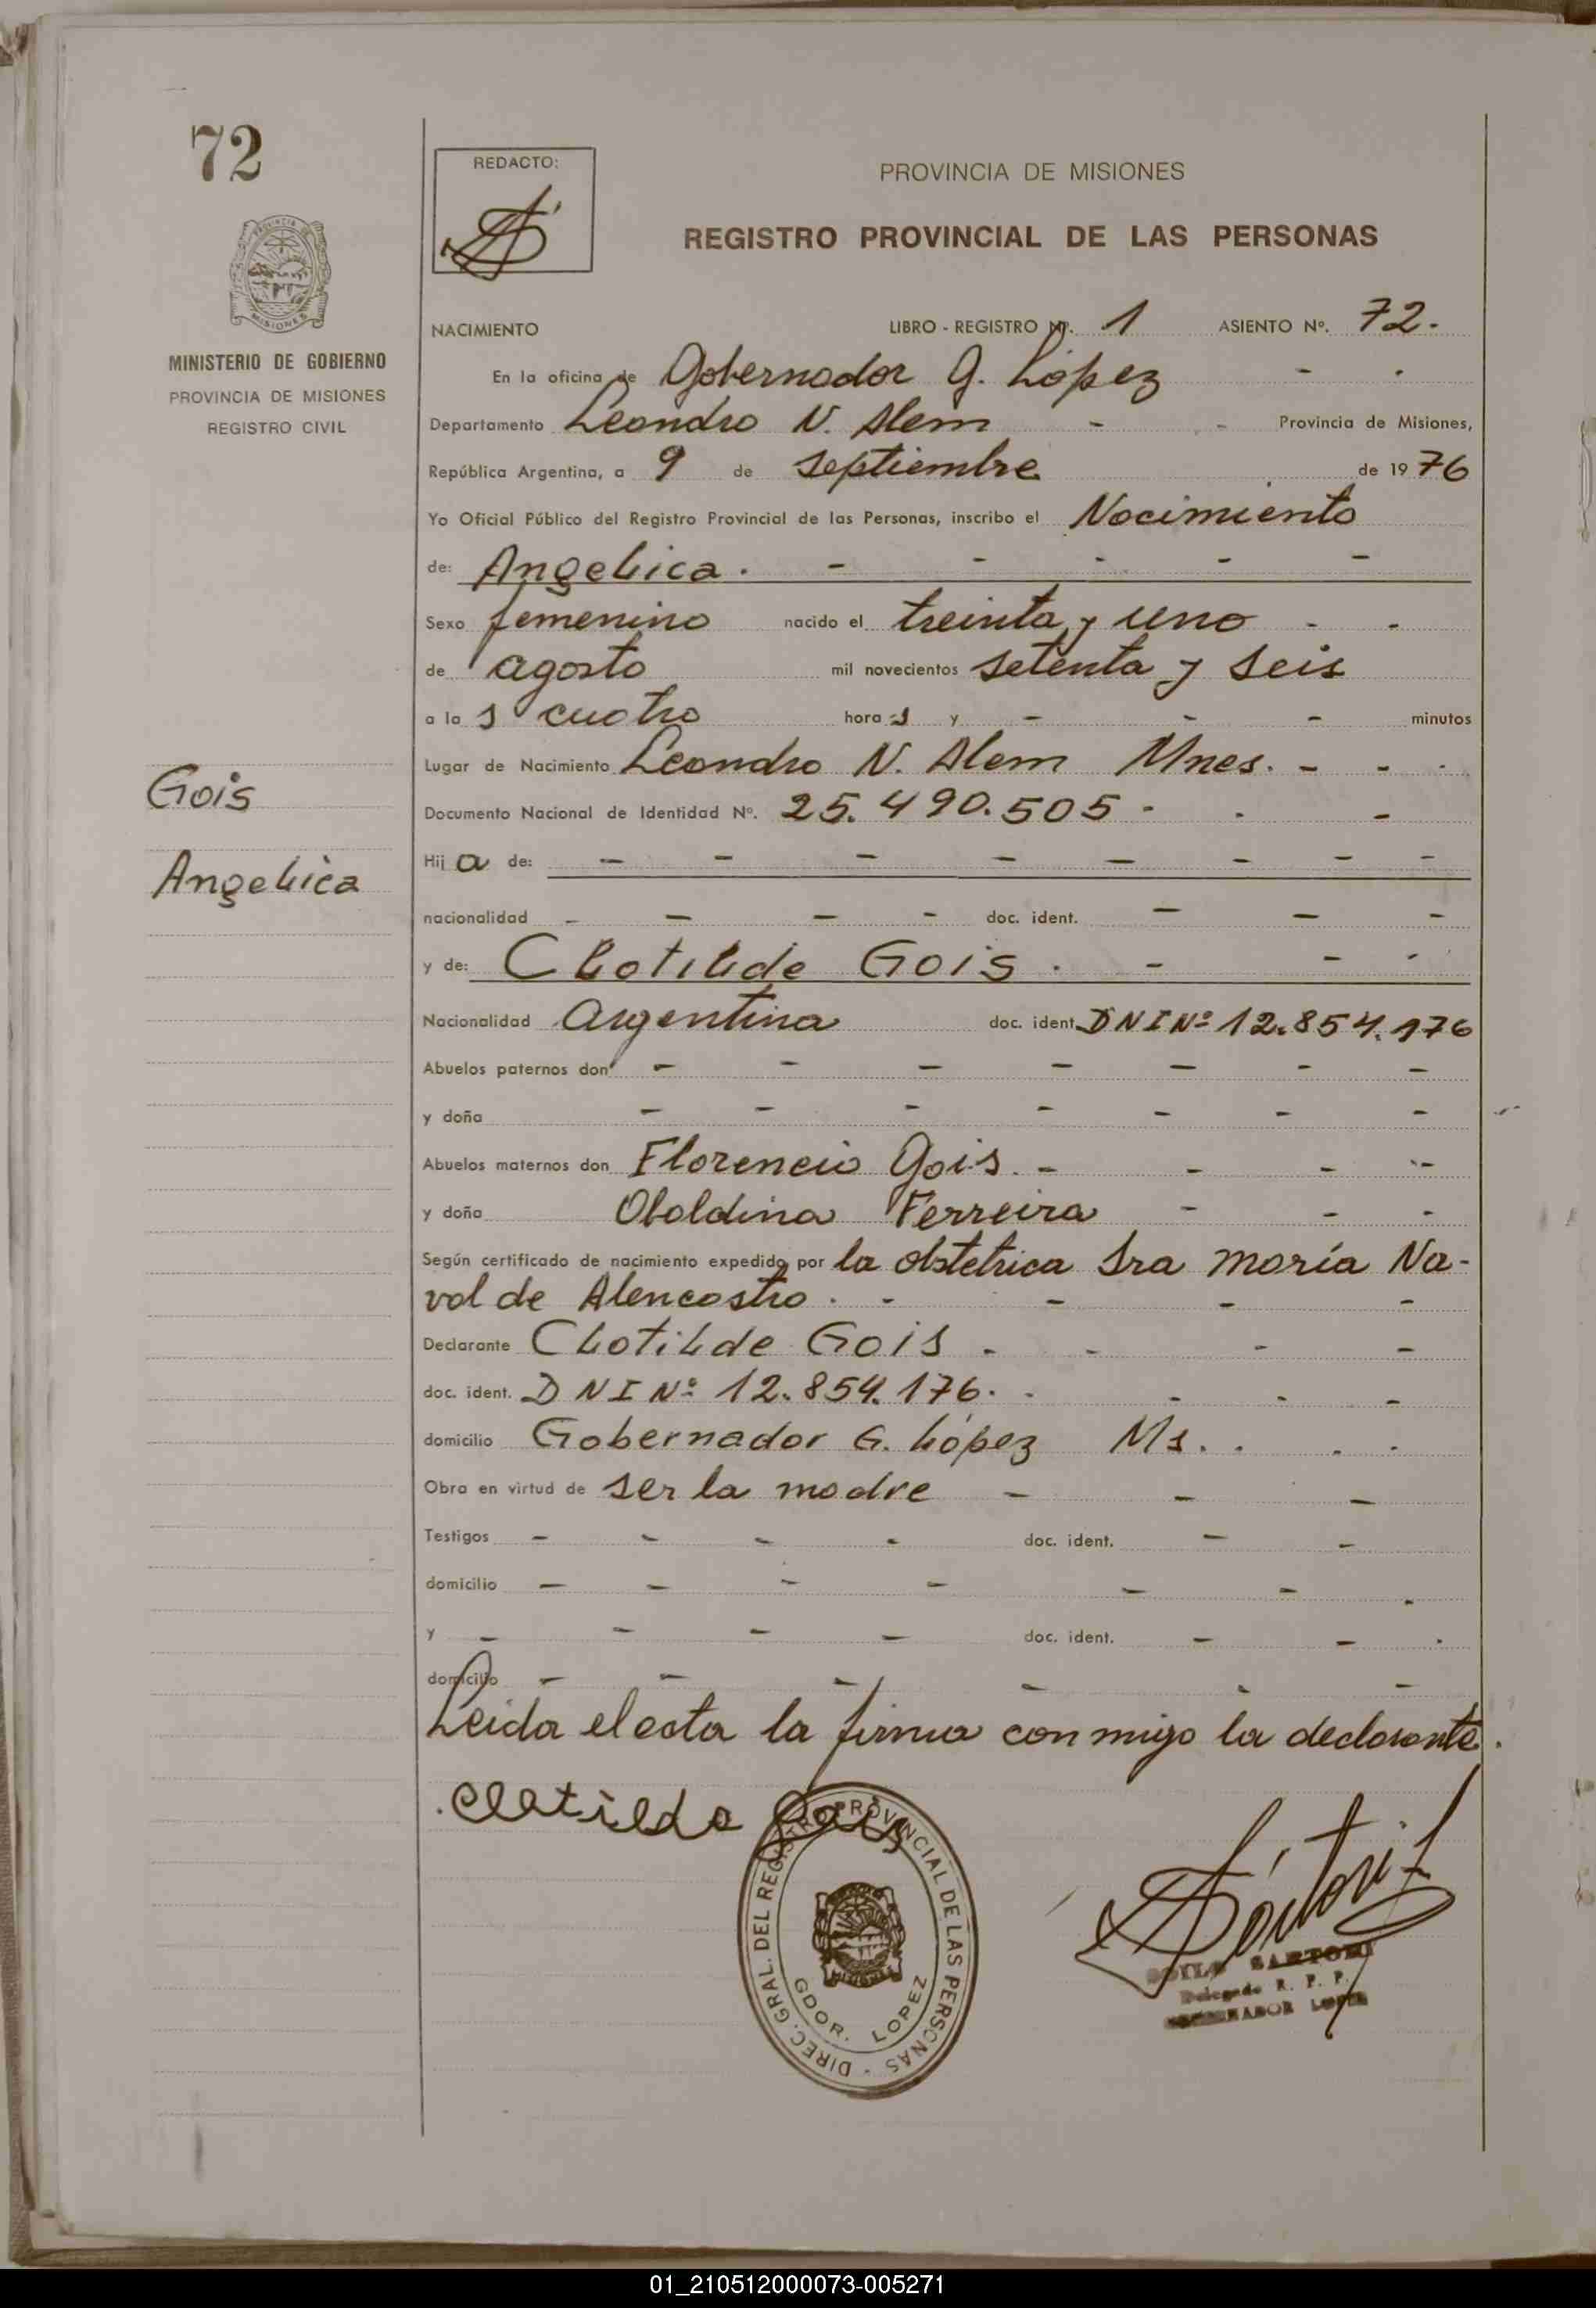 72
REDACTO:
PROVINCIA DE MISIONES
REGISTRO PROVINCIAL DE LAS PERSONAS
MINISTERIO DE GOBIERNO
PROVINCIA DE MISIONES
REGISTRO CIVIL
NACIMIENTO LIBRO - REGISTRO Nº. 1 ASIENTO Nº. 72.
En la oficina de Gobernador G. López - -
Departamento Leandro N. Alem - - Provincia de Misiones,
República Argentina, a 9 de septiembre de 1976
Yo Oficial Público del Registro Provincial de las Personas, inscribo el Nacimiento
de: Angelica. - - - - -
Sexo femenino nacido el treinta y uno - -
de agosto mil novecientos setenta y seis
a la s cuatro hora s y - - - minutos
Lugar de Nacimiento Leandro N. Alem Mnes. - - -
Documento Nacional de Identidad Nº. 25.490.505 - - -
Gois
Angelica
Hij a de: - - - - - - - -
nacionalidad - - - - doc. ident. - - -
y de: Clotilde Gois. - - -
Nacionalidad Argentina doc. ident. DNI Nº 12.854.176
Abuelos paternos don - - - - - - -
y doña - - - - - - -
Abuelos maternos don Florencio Gois. - - - -
y doña Oboldina Ferreira - - -
Según certificado de nacimiento expedido por la obstetrica Sra María Na-
val de Alencastro. - - - -
Declarante Clotilde Gois - - - -
doc. ident. DNI Nº 12.854.176. - - - -
domicilio Gobernador G. López Ms. . - -
Obra en virtud de ser la madre - - -
Testigos - - - - doc. ident. - -
domicilio - - - - - - -
y - - - - doc. ident. - - -
domicilio - - - - - -
Leida el acta la firma conmigo la declarante.
Clotilda Gois
DIREC. GRAL. DEL REGISTRO PROVINCIAL DE LAS PERSONAS -
MISIONES
GDOR. LOPEZ
SARTORI
Delegado R. P. P.
GOBERNADOR LOPEZ
01_210512000073-005271